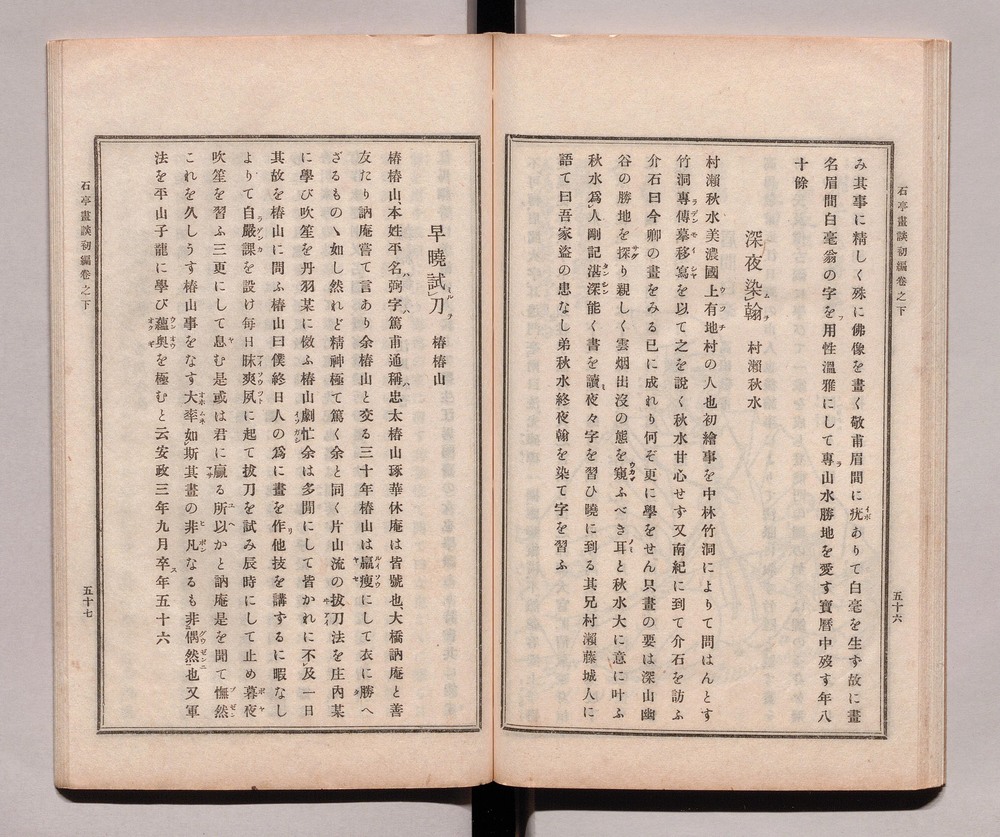 石亭畫談初編卷之下
五十六
み其事に精しく殊に佛像を畫く敬甫眉間に疣ありて白毫を生す故に畫
名眉間白毫翁の字を用性溫雅にして專山水勝地を愛す寶曆中歿す年八
十餘
深夜染翰 村瀨秋水
村瀨秋水美濃國上有地村の人也初繪事を中林竹洞によりて問はんとす
竹洞專傳摹移寫を以て之を說く秋水甘心せす又南紀に到て介石を訪ふ
介石曰今卿の畫をみる已に成れり何ぞ更に學をせん只畫の要は深山幽
谷の勝地を探り親しく雲烟出沒の態を窺ふべき耳と秋水大に意に叶ふ
秋水爲人剛記湛深能く書を讀夜々字を習ひ曉に到る其兄村瀨藤城人に
語て曰吾家盜の患なし弟秋水終夜翰を染て字を習ふ
早曉試刀 椿椿山
椿椿山、本姓平名弼字篤甫通稱忠太椿山琢華休庵は皆號也、大橋訥庵と善
友たり訥庵嘗て言あり余椿山と交る三十年椿山は羸瘦にして衣に勝へ
ざるものヽ如し然れど精神極て篤く余と同く片山流の拔刀法を庄內某
に學び吹笙を丹羽某に倣ふ椿山劇忙余は多閒にして皆かれに不及一日
其故を椿山に問ふ椿山曰僕終日人の爲に畫を作他技を講ずるに暇なし
よりて自嚴課を設け每日昧爽夙に起て拔刀を試み辰時にして止め暮夜
吹笙を習ふ三更にして息む是或は君に贏る所以かと訥庵是を聞て憮然
これを久しうす椿山事をなす大率如斯其畫の非凡なるも非偶然也又軍
法を平山子龍に學び蘊奧を極むと云安政三年九月卒年五十六
石亭畫談初編卷之下
五十七